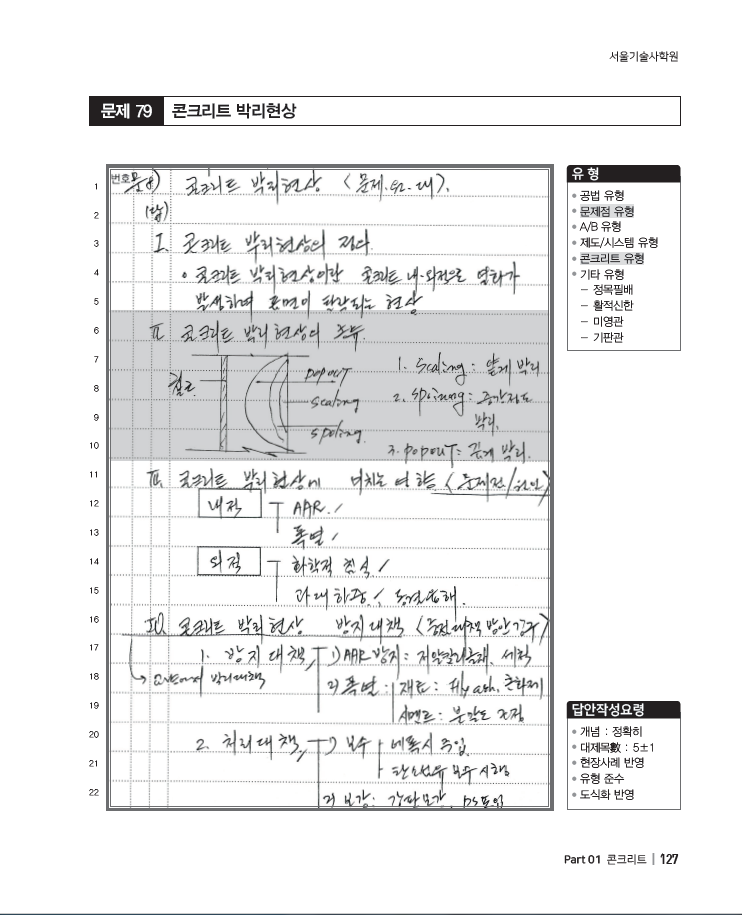 서울기술사학원
문제 79 콘크리트 박리현상
번호 문8) 콘크리트 박리현상 (문제.원.대).
1
2 (답)
3 I. 콘크리트 박리현상의 정의
4 • 콘크리트 박리현상이란 콘크리트 내·외적으로 열화가
5 발생하여 표면이 탈락되는 현상
6 II. 콘크리트 박리현상의 종류.
7 1. Scaling : 얇게 박리
철근 popout
8 2. spoiling : 중간정도
scaling
9 박리.
spoling
10 3. popout : 깊게 박리.
11 III. 콘크리트 박리현상에 미치는 영향. (문제점/원인)
12 내적 AAR. /
13 폭열 /
14 외적 화학적 침식 /
15 과대하중. / 동결융해.
16 IV. 콘크리트 박리현상 방지대책
17 1. 방지대책, 1) AAR 방지 : 저알칼리골재, 세척
18 박리대책 2) 폭열 : 재료 : Fly ash,
19 시멘트 : 분말도
20 2. 처리대책, 1) 보수 에폭시 주입
21 탄소섬유 보수 시행
22 2) 보강 : 강판보강, PS도입
유 형
• 공법 유형
• 문제점 유형
• A/B 유형
• 제도/시스템 유형
• 콘크리트 유형
• 기타 유형
– 정목필배
– 활적신한
– 미영관
– 기판관
답안작성요령
• 개념 : 정확히
• 대제목數 : 5±1
• 현장사례 반영
• 유형 준수
• 도식화 반영
Part 01 콘크리트 | 127